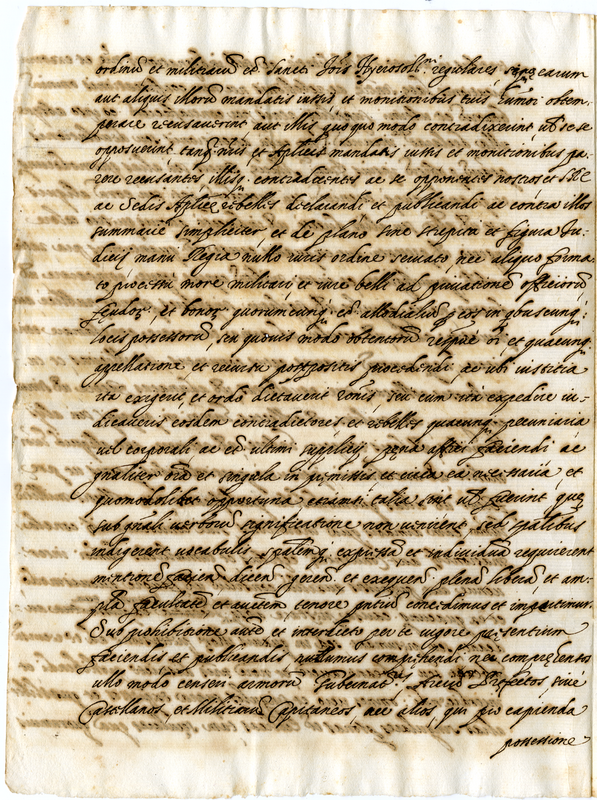 ordinũ et militiarũ eƭ Sancti Jois Hyerosoll.ni regulares, earum
aut aliquis illorũ mandatis iussis et monitionibus tuis humõi obtem-
perare recusaverint aut illis quoquo modo contradixerint, ut se se
opposuerint, tanq̃ nris, et Aplicis mandatis iussis et monitionibus pa-
rere recusantes, illisq. contradicentes ac se opponentes nostros et
ac Sedis Aplicę rebelles declarandi et publicandi ac contra illos
summarie simpliciter, et de plano sine strepitu et figura Ju-
dicij manu Regia nullo iuris ordine servato nec aliquo forma-
to processu more militari et iure belli ad privationẽ officiorũ
feudor. et bonor. quorumcunq. eƭ allodialiũ per eos in qbuscunq.
locis possessorũ, seu quovis modo obtentorũ et quacunq.
appellatione et postpositis procedendi, ac ubi iustitia
ita exegerit, et ordo dictaverit rõnis, seu cum ita expedire iu-
dicaveris eosdem contradictores, et rebelles quacunq. pecuniaria
vel corporali ac eƭ ultimi supplicij pęna affici faciendi ac
gnaliter oĩa et singula in premissis et circa ea necessaria, et
quomodolibet opportuna etiamsi talia sint ut fuerint quę
sub gnali verborũ significatione non venirent, sed spãlibus
indigerent vocabulis spãlemq. expressã et individuã requirerent
mentionẽ faciẽn. dicen. geren. et exequen. plenã liberã, et am-
plã facultatẽ et auctem, tenore pñtiũ concedimus et impartimur.
Sub prohibitione autẽ et interdicto per te vigore presentium
faciendis et publicandis, nolumus comprehendi nec comprehensos
ullo modo censeri armorũ Gubernat.es, Arciũ Prefectos, sive
Castellanos, et Militiarũ Capitaneos, nec alios, qui pro capienda
possessione